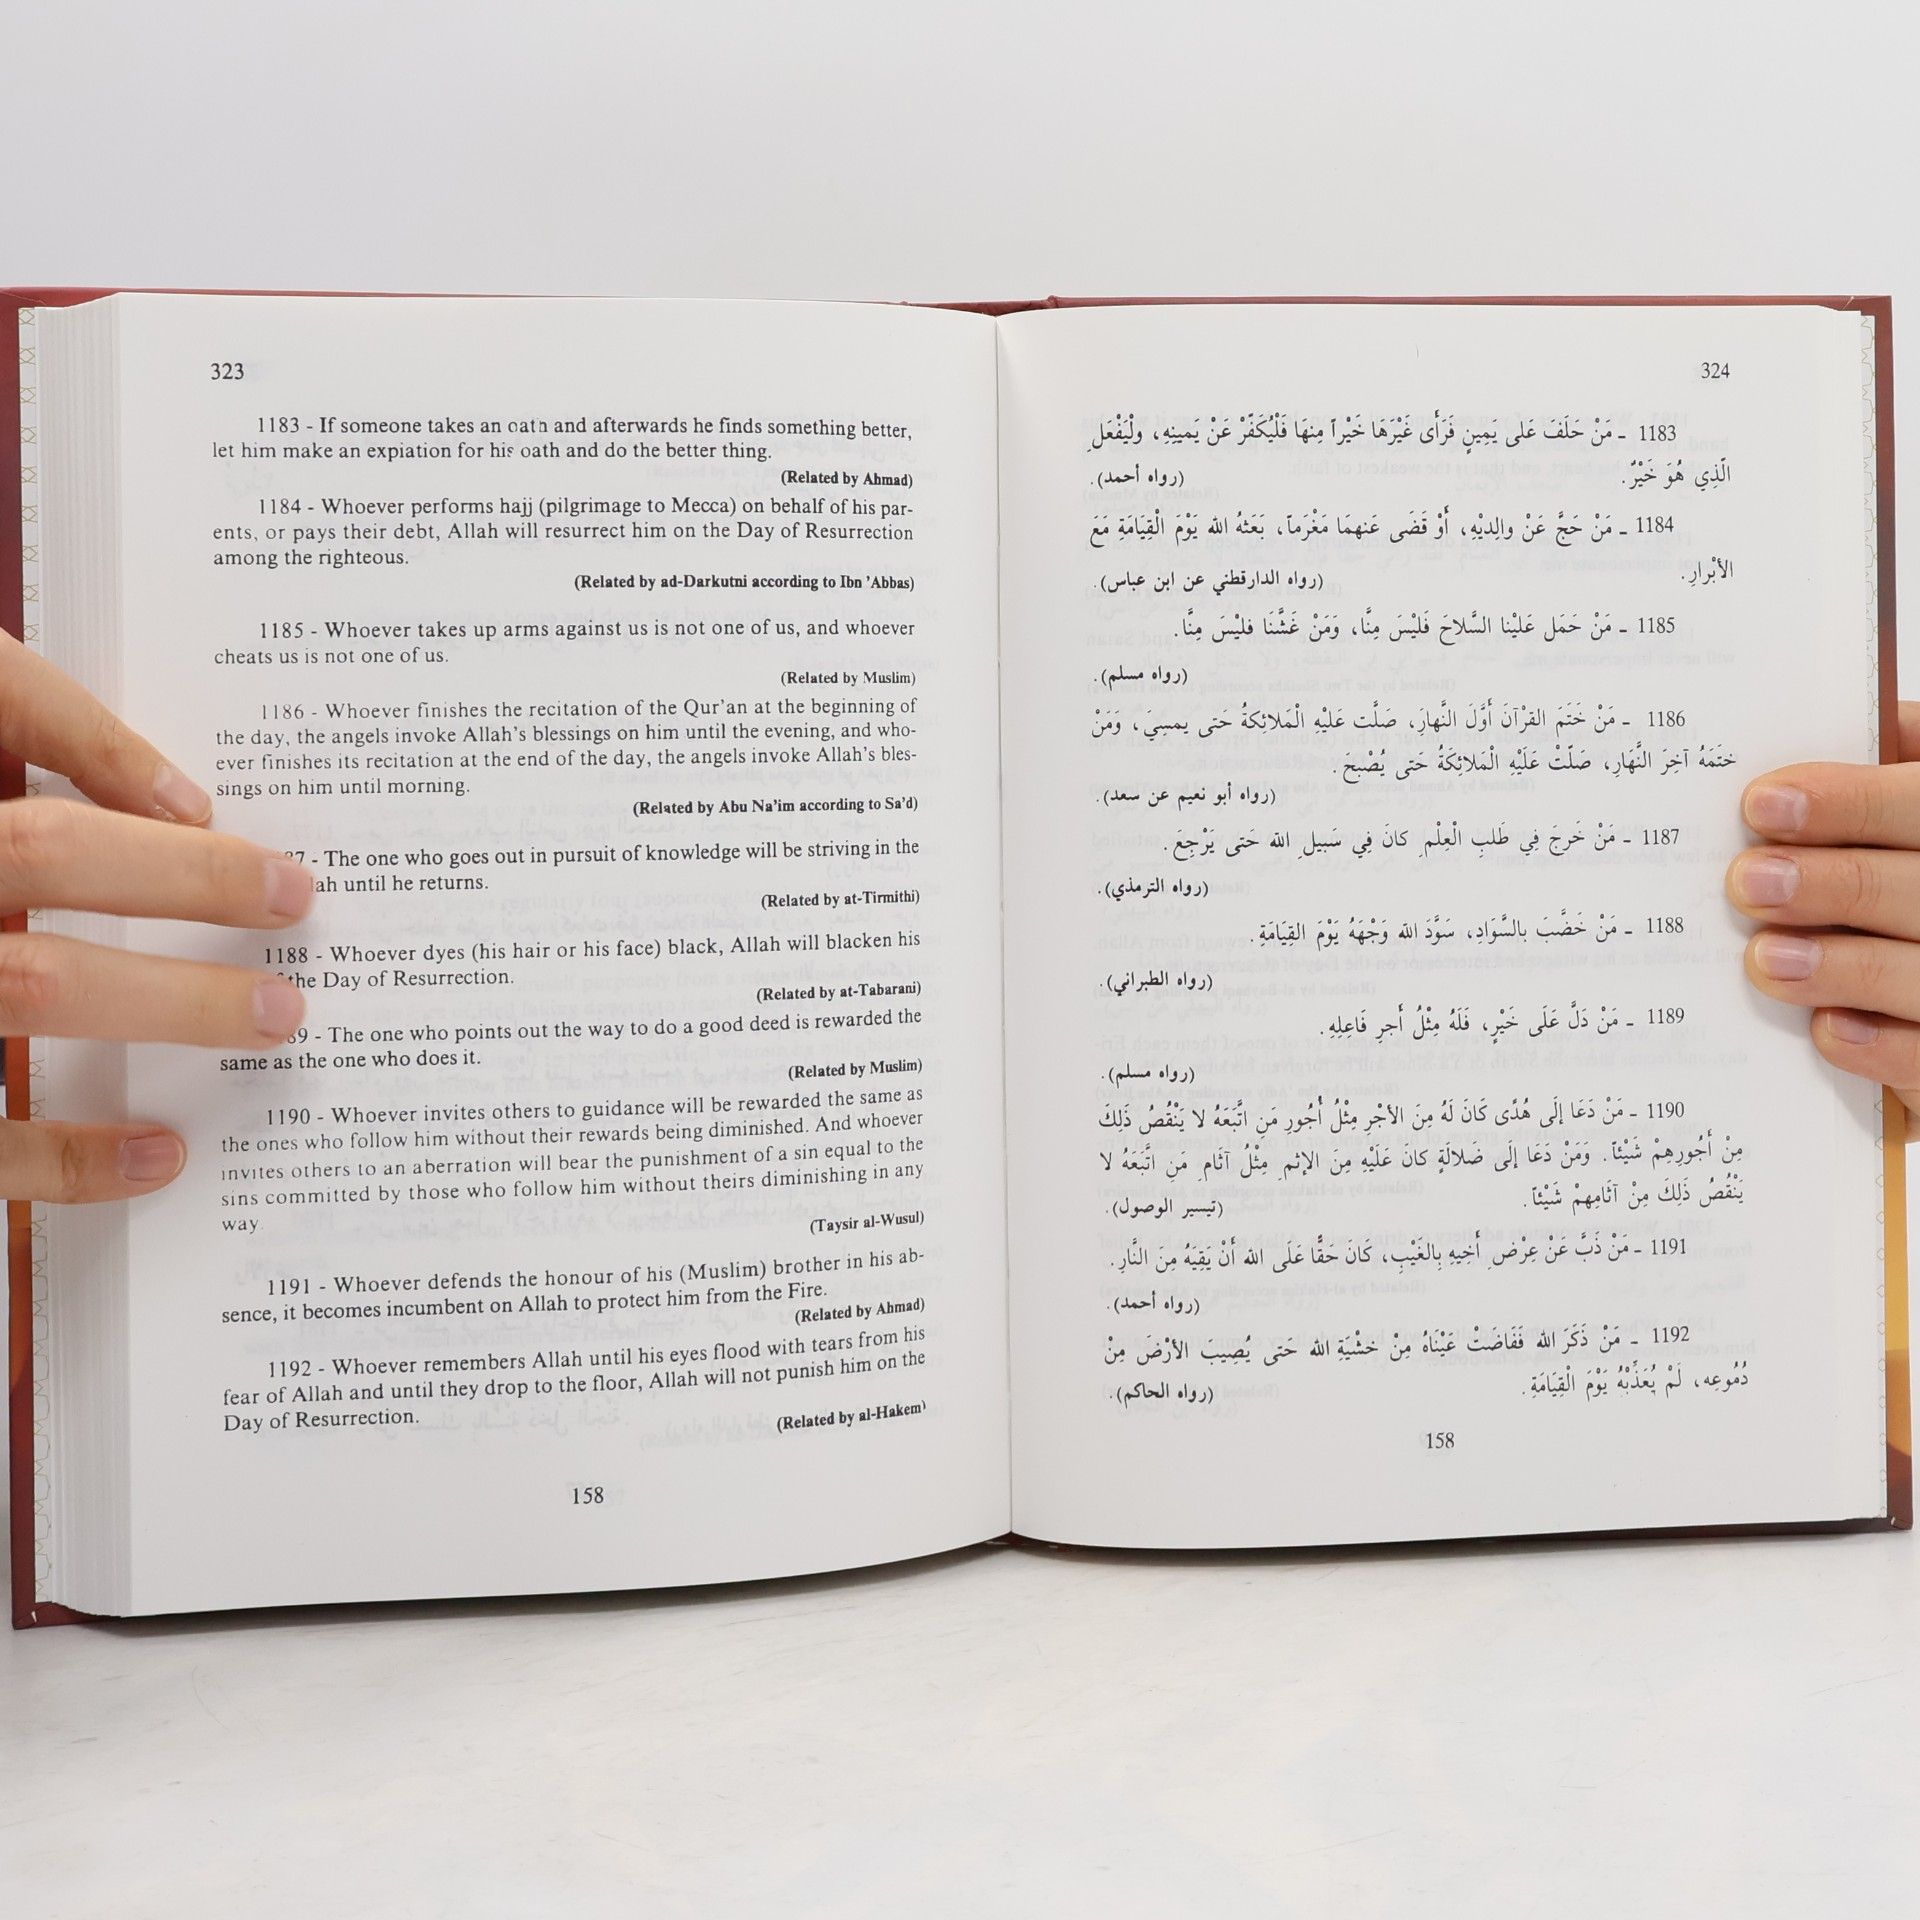 323
1183 - If someone takes an oath and afterwards he finds something better,
let him make an expiation for his oath and do the better thing.
(Related by Ahmad)
1184 - Whoever performs hajj (pilgrimage to Mecca) on behalf of his par-
ents, or pays their debt, Allah will resurrect him on the Day of Resurrection
among the righteous.
(Related by ad-Darkutni according to Ibn 'Abbas)
1185 - Whoever takes up arms against us is not one of us, and whoever
cheats us is not one of us.
(Related by Muslim)
1186 - Whoever finishes the recitation of the Qur'an at the beginning of
the day, the angels invoke Allah's blessings on him until the evening, and who-
ever finishes its recitation at the end of the day, the angels invoke Allah's bles-
sings on him until morning.
(Related by Abu Na'im according to Sa'd)
87 - The one who goes out in pursuit of knowledge will be striving in the
lah until he returns.
(Related by at-Tirmithi)
1188 - Whoever dyes (his hair or his face) black, Allah will blacken his
the Day of Resurrection.
(Related by at-Tabarani)
89 - The one who points out the way to do a good deed is rewarded the
same as the one who does it.
(Related by Muslim)
1190 - Whoever invites others to guidance will be rewarded the same as
the ones who follow him without their rewards being diminished. And whoever
invites others to an aberration will bear the punishment of a sin equal to the
sins committed by those who follow him without theirs diminishing in any
way.
(Taysir al-Wusul)
1191 - Whoever defends the honour of his (Muslim) brother in his ab-
sence, it becomes incumbent on Allah to protect him from the Fire.
(Related by Ahmad)
1192 - Whoever remembers Allah until his eyes flood with tears from his
fear of Allah and until they drop to the floor, Allah will not punish him on the
Day of Resurrection.
(Related by al-Hakem)
158
324
1183 ـ مَنْ حَلَفَ عَلى يَمِينٍ فَرَأَى غَيْرَهَا خَيْراً مِنهَا فَلْيُكَفِّرْ عَنْ يَمينِهِ، ولْيَفْعَلِ
الَّذِي هُوَ خَيْرٌ.
(رواه أحمد).
1184 ـ مَنْ حَجَّ عَنْ والِديْهِ، أَوْ قَضَى عَنهمَا مَغْرَماً، بَعَثهُ الله يَوْمَ الْقِيَامَةِ مَعَ
الأبْرارِ.
(رواه الدارقطني عن ابن عباس).
1185 ـ مَنْ حَمَل عَليْنا السَّلاحَ فَليْسَ مِنَّا، وَمَنْ غَشَّنَا فليْسَ مِنَّا.
(رواه مسلم).
1186 ـ مَنْ خَتَمَ القرْآنَ أَوَّلَ النَّهارَ، صَلَّت عَليْهِ الْمَلائِكةُ حَتى يمسِيَ، وَمَنْ
ختَمَهُ آخِرَ النَّهَارِ، صَلّتْ عَلَيْهِ الْمَلائِكَةُ حَتى يُصْبحَ.
(رواه أبو نعيم عن سعد).
1187 ـ مَنْ خَرجَ فِي طَلبِ الْعِلْمِ كانَ فِي سَبيلِ الله حَتى يَرْجِعَ.
(رواه الترمذي).
1188 ـ مَنْ خَضَّبَ بالسَّوَادِ، سَوَّدَ الله وَجْهَهُ يَوْمَ القِيَامَةِ.
(رواه الطبراني).
1189 ـ مَنْ دَلَّ عَلَى خَيْرٍ، فَلَهُ مِثْلُ أَجرِ فَاعِلِهِ.
(رواه مسلم).
1190 ـ مَنْ دَعَا إلَى هُدًى كَانَ لَهُ مِنَ الأجْرِ مِثْلُ أُجُورِ مَنِ اتَّبَعَهُ لا يَنْقُصُ ذَلِكَ
مِنْ أُجُورِهِمْ شَيْئاً. وَمَنْ دَعَا إلَى ضَلالَةٍ كانَ عَلَيْهِ مِنَ الإثمِ مِثْلُ آثَامِ مَنِ اتَّبَعَهُ لا
يَنْقُصُ ذَلِكَ مِنْ آثَامِهِمْ شَيْئاً.
(تيسير الوصول).
1191 ـ مَنْ ذَبَّ عَنْ عِرْضِ أَخِيهِ بِالغَيْبِ، كَانَ حَقًّا عَلَى الله أَنْ يَقِيَهُ مِنَ النَّارِ.
(رواه أحمد).
1192 ـ مَنْ ذَكَرَ الله فَفَاضَتْ عَيْنَاهُ مِنْ خشْيَةِ الله حَتى يُصِيبَ الأرْضَ مِنْ
دُمُوعِه، لَمْ يُعَذِّبْهُ يَوْمَ الْقِيَامَةِ.
(رواه الحاكم).
158